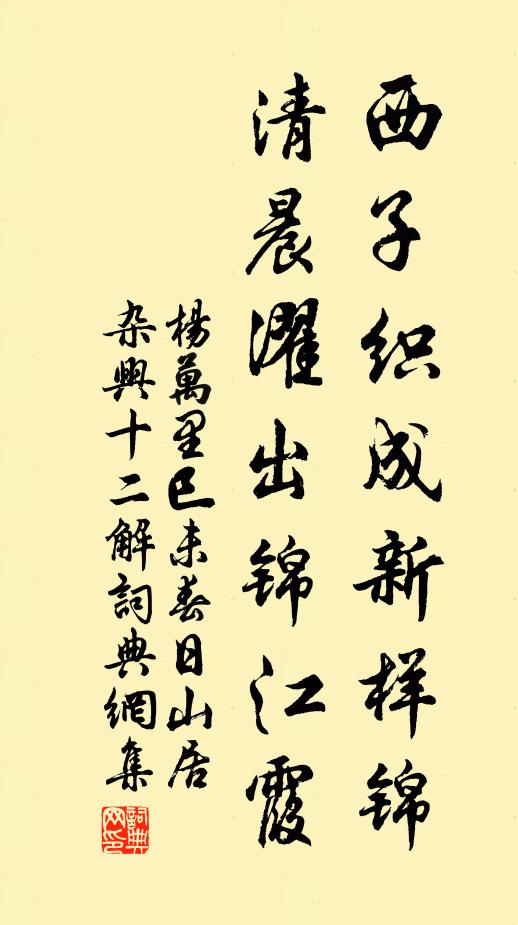 西子织成新样锦
清晨濯出锦江霞
楊萬里已未春日山居
杂興十二解詞典網集
詞典网印